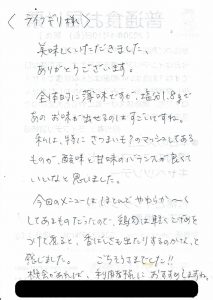 〈ライフデリ様〉
美味しくいただきました、
ありがとうございます。
全体的に薄味ですが、塩分1.8gで
あのお味が出せるのはすごいですね。
私は、特にさつまいも?のマッシュしてある
ものが、酸味と甘味のバランスが良くて
いいなと思いました。
今回のメニューはほとんどやわらか〜く
してあるものだったので、鶏肉は軽くこげめを
つけて有ると、香ばしさも出たりするのかな、と
感じました。 ごちそうさまでした!!
機会があれば、利用者様におすすめしますね。